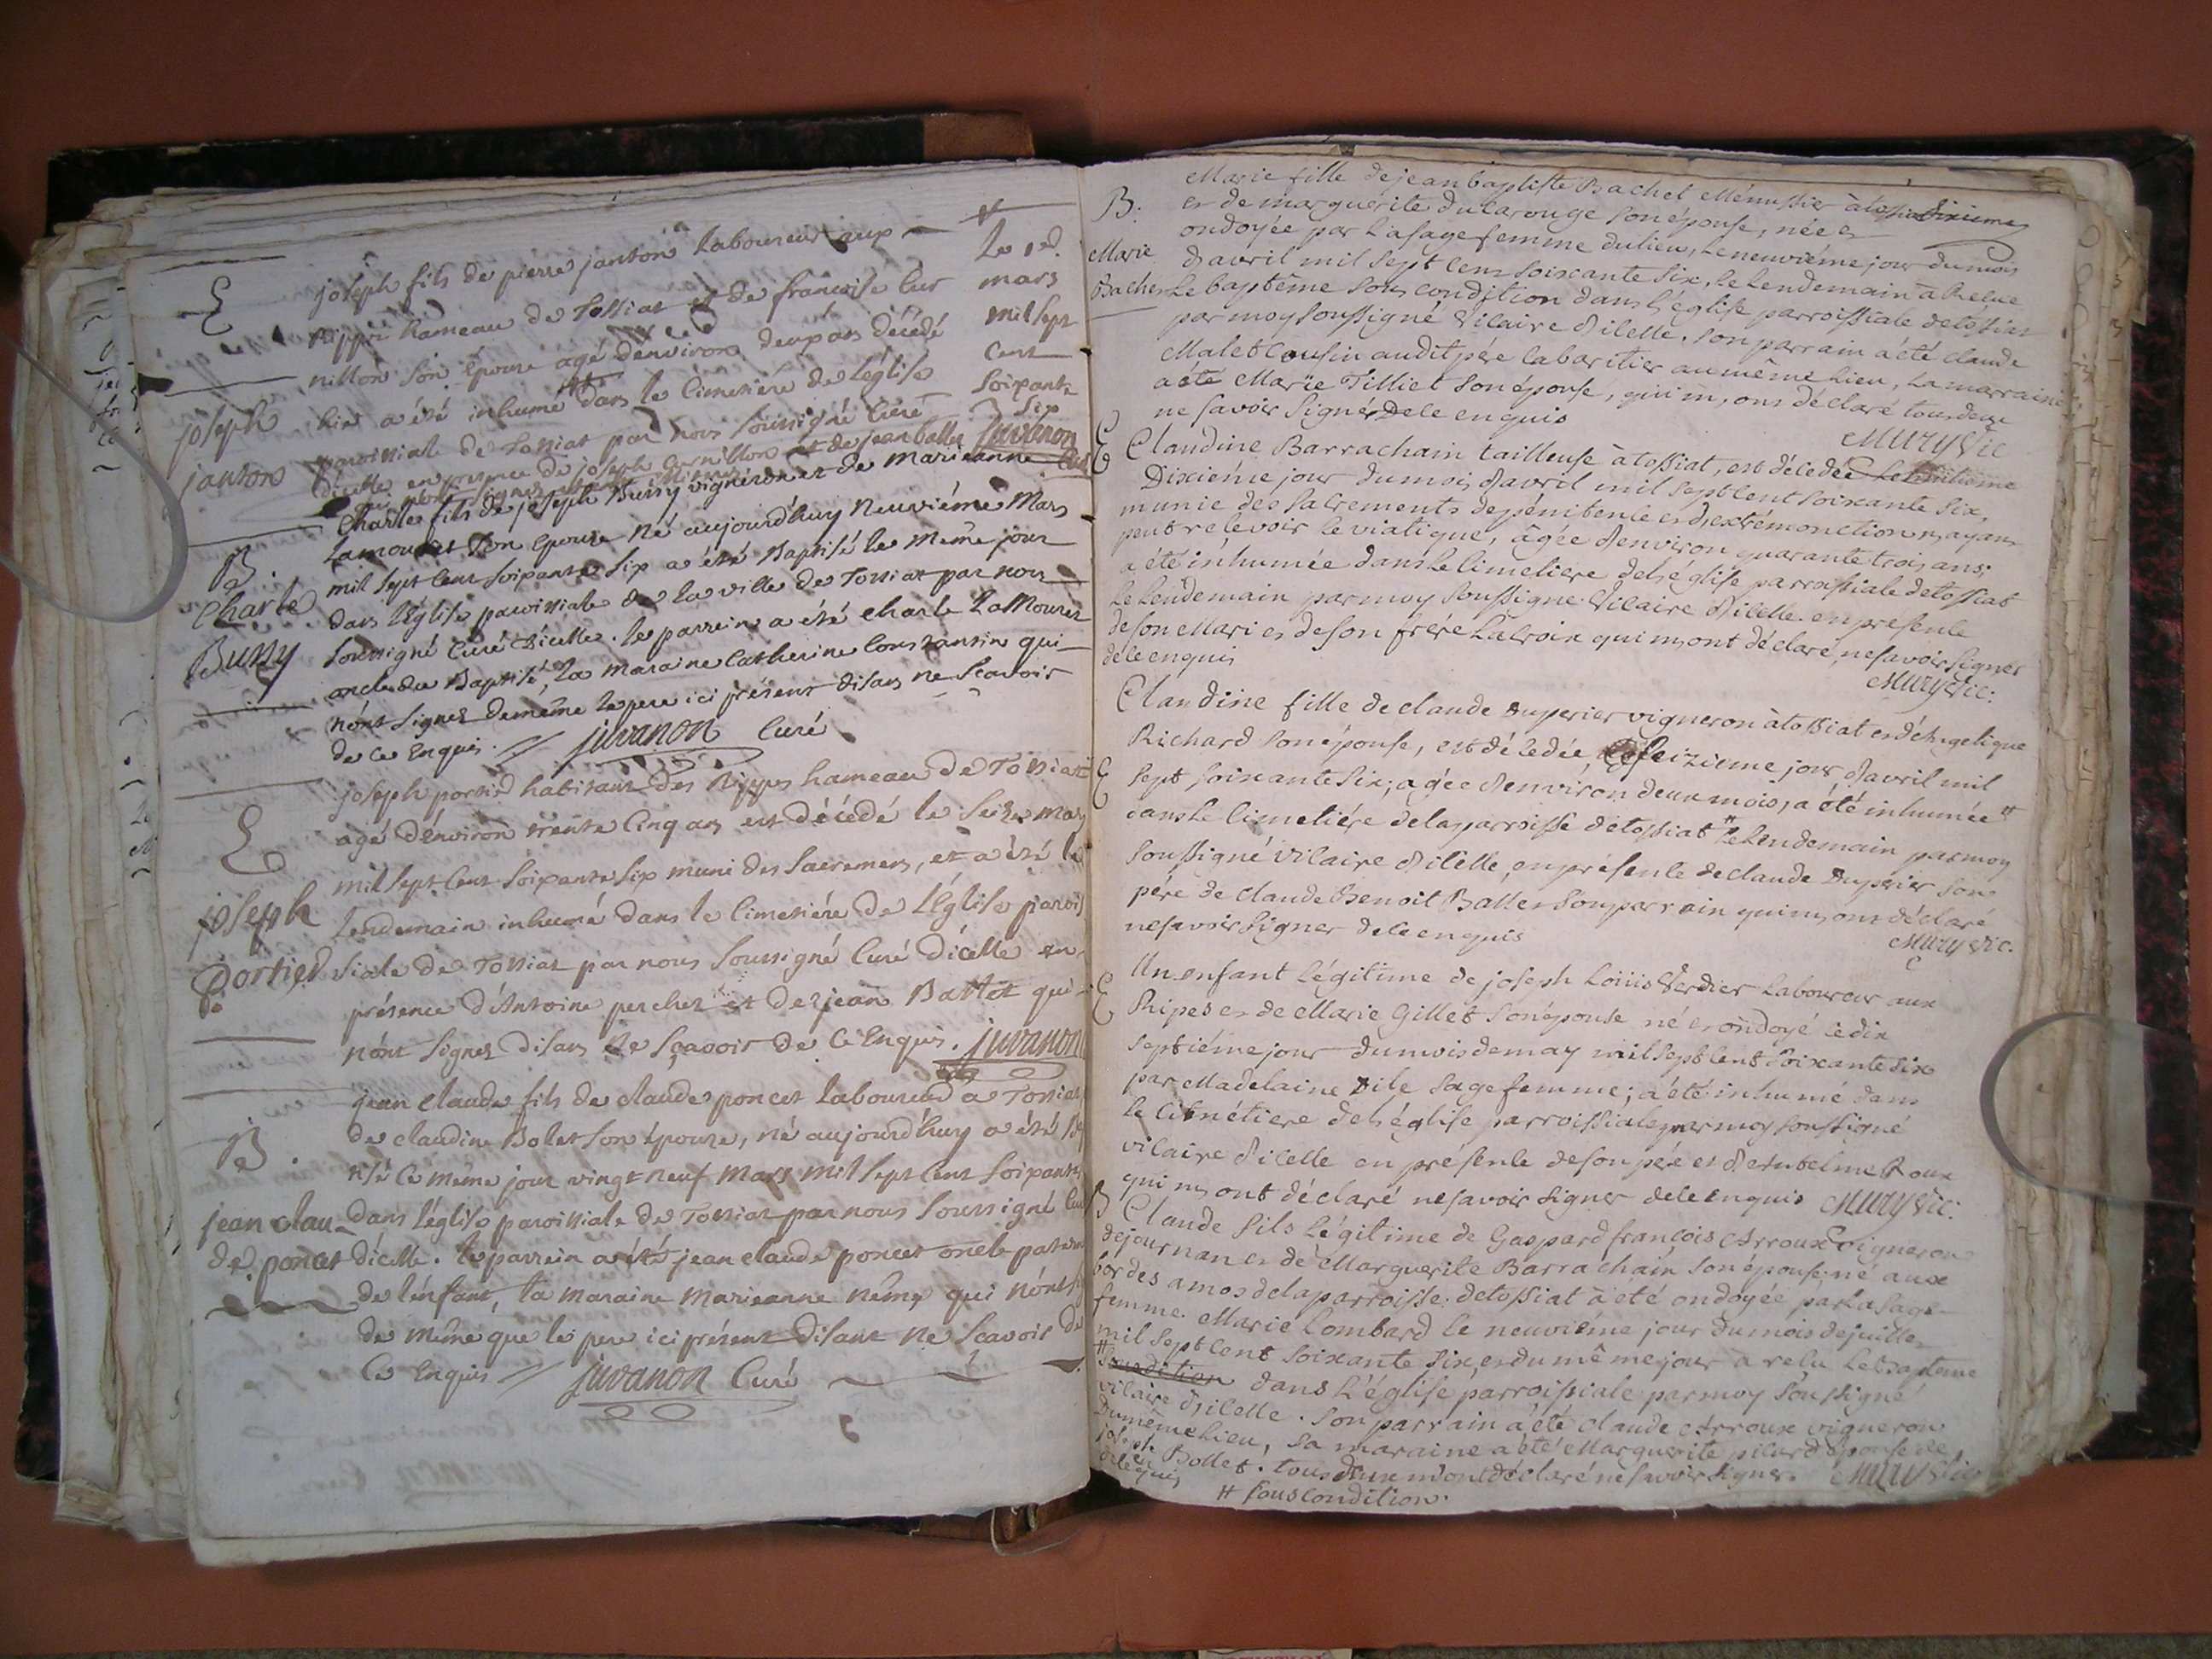 E
joseph
janton
joseph fils de pierre janton laboureur aux
Rippes hameau de Tossiat et de francoise Cur
nillon son épouse agé denviron deux ans décédé
hier a été inhumé # dans le Cimetiére de léglise
paroissiale de Tossiat par nous soussigné Curé
dicelle en presence de joseph Curnillon et de jean ballet
# le 1er.
mars
mil sept
cent
soixante
six
Juvanon
Curé
B.
Charle
Bussy
Charle fils de joseph Bussy vigneron et de marieanne
Lamouret son épouse né aujourd'huy neuviéme Mars
mil sept cent soixante six a été Baptisé le même jour
dans léglise paroissiale de la ville de Tossiat par nous
soussigné Curé dicelle. le parrein a été charle Lamouret
oncle du Baptisé, la maraine Catherine Constantin qui
nont signez demême le pere ici présent disans ne scavoir
de ce enquis. // juvanon Curé
E
joseph
portier
joseph portier habitant des Rippes hameau de Tossiat
agé d'environ trente cinq ans est décédé le seize mars
mil sept cent soixante six muni des sacremens, et a été le
lendemain inhumé dans le Cimetiére de Léglise parois
siale de Tossiat par nous soussigné Curé dicelle en
présence d'Antoine perchet et de jean Ballet qui
nónt signez disans ne sçavoir de ce enquis. juvanon
B.
jean clau-
de poncet
jean claude fils de claude poncet laboureur a Tossiat
de claudine Bolet son épouse, né aujourd'huy a été Bap
tisé le même jour vingt neuf mars mil sept cent soixante
dans léglise paroissiale de Tossiat par nous soussigné Curé
dicelle. le parrein a été jean claude poncet oncle paternel
de lénfant, la maraine marieanne qui nónt
de même que le pere ici présent disant ne scavoir de
ce enquis // juvanon Curé
B.
Marie
Bachet
Marie fille de jean baptiste Bachet Ménussier à tossiat
et de marguerite Ducarouge son épouse, née et
ondoyée par la sage femme du lieu, le neuviéme jour du mois
d'avril mil sept cent soixante six, le lendemain à Reçue
Le baptême sous condition dans l'église parroissiale de tossiat
par moy soussigné vicaire d'icelle. son parrain a été claude
Malet Cousin audit pére Cabaretier au même lieu, La marraine
a été Marie Tilliet son épouse, qui m'ont déclaré tous deux
ne savoir signer de ce enquis
Mury Vic
E
Claudine Barrachain tailleuse à tossiat, est décedée le
Dixiéme jour du mois d'avril mil sept cent soixante six,
munie des sacrements de pénitence et d'extrémonction n'ayant
peut recevoir le viatique, âgée d'environ quarante trois ans;
a été inhumée dans le cimetiere de l'église parroissiale de tossiat
le lendemain par moy soussigné vicaire d'icelle. en presence
de son Mari et de son frére Lacroix qui m'ont déclaré ne savoir signer
de ce enquis
Mury Vic:
E
Claudine fille de claude Duperier vigneron à tossiat et d'Angelique
Richard son épouse, est décedée, le seizieme jour d'avril mil
sept soixante six; agée d'environ deux mois, a été inhumée #
dans le Cimetiére de la parroisse de tossiat # le lendemain par moy
soussigné vicaire d'icelle, en présence de claude Duperier son
pére de claude Benoit Ballet son parrain qui m'ont déclaré
ne savoir signer de ce enquis
Mury Vic.
E
Un enfant légitime de joseph Loüis Verdier Laboureur aux
Ripes et de Marie Gillet son épouse né et ondoyé le dix
septiéme jour du mois de may mil sept cent soixante six
par Madelaine sage femme; a été inhumé dans
le cimétiere de l'église parroissiale par moy soussigné
vicaire d'icelle en présence de son pére et d'Antelme Roux
qui m'ont déclaré ne savoir signer de ce enquis Mury Vic:
B
Claude fils légitime de Gaspard françois Arroux vigneron
de journan et de Marguerite Barrachain son épouse, né aux
bordes amos de la parroisse de tossiat à été ondoyée par la sage
femme Marie Lombard le neuviéme jour du mois de juillet
mil sept cent soixante six, et du même jour à reçu le baptême
# dans l'église parroissiale par moy soussigné
vicaire d'icelle. son parrain a été claude Arroux vigneron
du même lieu, sa maraine a été Marguerite picard épouse de
joseph Bollet. tous deux m'ont déclaré ne savoir signer. Mury Vic
de ce enquis
# sous condition.